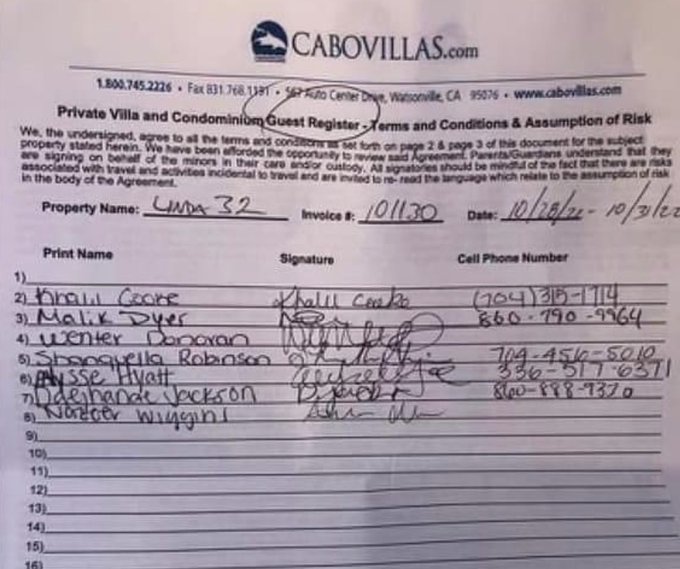 CABOVILLAS.com
1.800.745.2226 • Fax 831.768.1191 • 567 Auto Center Drive, Watsonville, CA 95076 • www.cabovillas.com
Private Villa and Condominium Guest Register - Terms and Conditions & Assumption of Risk
We, the undersigned, agree to all the terms and conditions as set forth on page 2 & page 3 of this document for the subject
property stated herein. We have been afforded the opportunity to review said Agreement. Parents/Guardians understand that they
are signing on behalf of the minors in their care and/or custody. All signatories should be mindful of the fact that there are risks
associated with travel and activities incidental to travel and are invited to re- read the language which relate to the assumption of risk
in the body of the Agreement.
Property Name: LINDA 32 Invoice #: 101130 Date: 10/28/22 - 10/31/22
Print Name Signature Cell Phone Number
1)
2) Khalil Cooke Khalil Cooke (704)315-1714
3) Malik Dyer 860-790-9964
4) Wenter Donovan
5) Shanquella Robinson 704-456-5010
6) Alysse Hyatt 336-517-6371
7) Daejhanae Jackson 860-888-9370
8) Wiggins
9)
10)
11)
12)
13)
14)
15)
16)